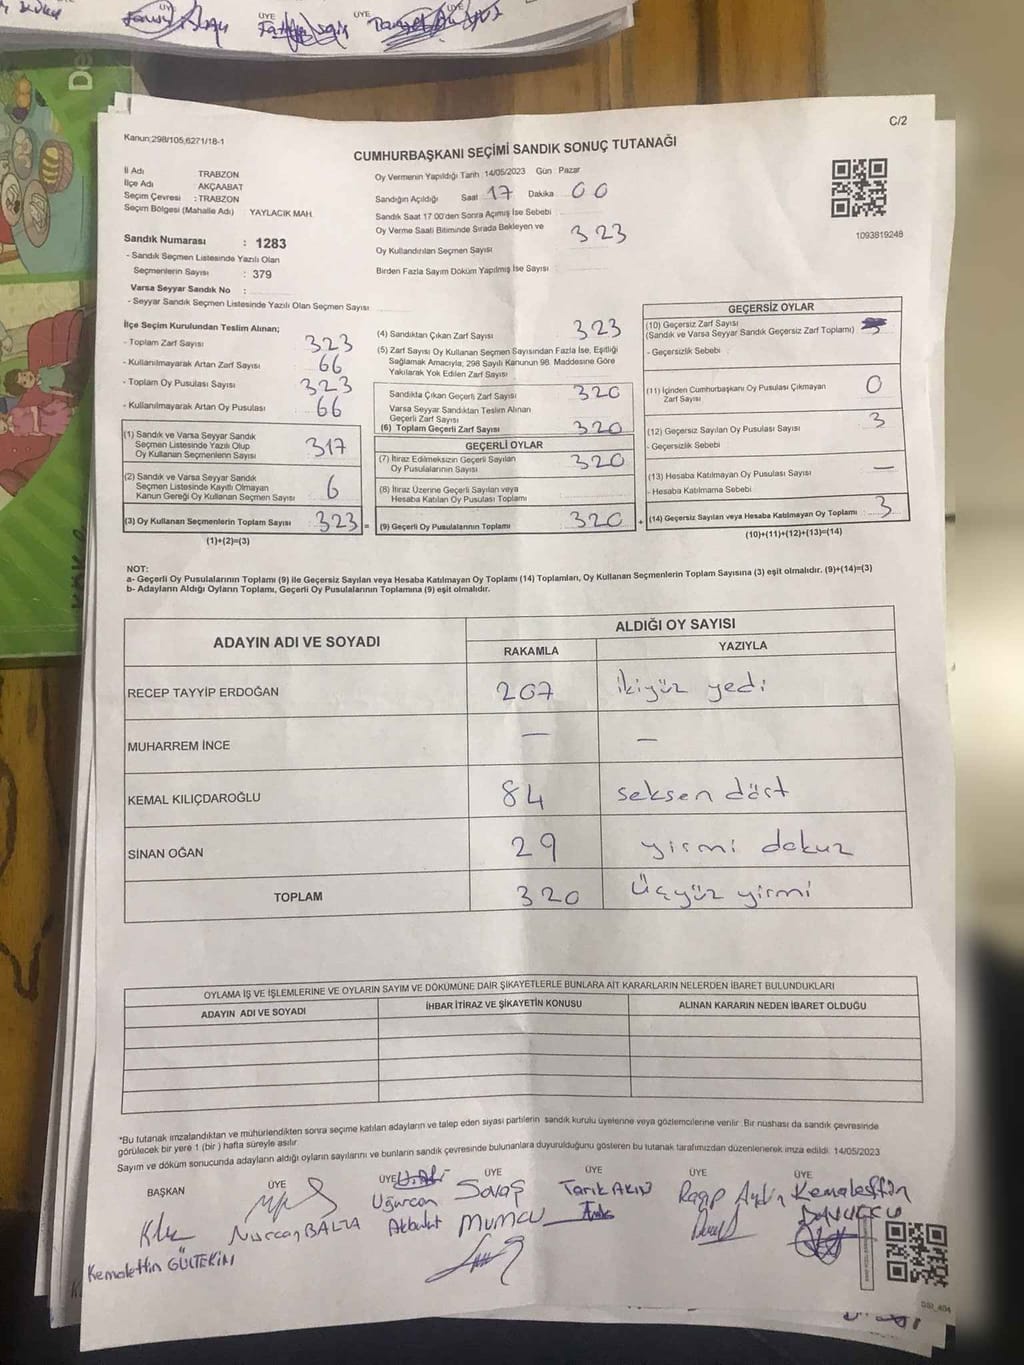 ÜYE ÜYE ÜYE
De
C/2
Kanun;298/105,6271/18-1
CUMHURBAŞKANI SEÇİMİ SANDIK SONUÇ TUTANAĞI
İl Adı TRABZON
İlçe Adı AKÇAABAT
Seçim Çevresi : TRABZON
Seçim Bölgesi (Mahalle Adı) YAYLACIK MAH.
Oy Vermenin Yapıldığı Tarih :14/05/2023 Gün : Pazar
Sandığın Açıldığı Saat 17 Dakika 00
Sandık Saat 17 00'den Sonra Açımış İse Sebebi
Oy Verme Saati Bitiminde Sırada Bekleyen ve
Oy Kullandırılan Seçmen Sayısı 323
Birden Fazla Sayım Döküm Yapılmış İse Sayısı
1093819248
Sandık Numarası : 1283
- Sandık Seçmen Listesinde Yazılı Olan
Seçmenlerin Sayısı : 379
Varsa Seyyar Sandık No :
- Seyyar Sandık Seçmen Listesinde Yazılı Olan Seçmen Sayısı
İlçe Seçim Kurulundan Teslim Alınan;
- Toplam Zarf Sayısı 323
- Kullanılmayarak Artan Zarf Sayısı 66
- Toplam Oy Pusulası Sayısı 323
- Kullanılmayarak Artan Oy Pusulası 66
(1) Sandık ve Varsa Seyyar Sandık
Seçmen Listesinde Yazılı Olup
Oy Kullanan Seçmenlerin Sayısı 317
(2) Sandık ve Varsa Seyyar Sandık
Seçmen Listesinde Kayıtlı Olmayan
Kanun Gereği Oy Kullanan Seçmen Sayısı 6
(3) Oy Kullanan Seçmenlerin Toplam Sayısı 323 =
(1)+(2)=(3)
(4) Sandıktan Çıkan Zarf Sayısı 323
(5) Zarf Sayısı Oy Kullanan Seçmen Sayısından Fazla İse, Eşitliği
Sağlamak Amacıyla, 298 Sayılı Kanunun 98. Maddesine Göre
Yakılarak Yok Edilen Zarf Sayısı
Sandıkta Çıkan Geçerli Zarf Sayısı 320
Varsa Seyyar Sandıktan Teslim Alınan
Geçerli Zarf Sayısı
(6) Toplam Geçerli Zarf Sayısı 320
GEÇERLİ OYLAR
(7) İtiraz Edilmeksizin Geçerli Sayılan
Oy Pusulalarının Sayısı 320
(8) İtiraz Üzerine Geçerli Sayılan veya
Hesaba Katılan Oy Pusulası Toplamı
(9) Geçerli Oy Pusulalarının Toplamı 320 +
GEÇERSİZ OYLAR
(10) Geçersiz Zarf Sayısı
(Sandık ve Varsa Seyyar Sandık Geçersiz Zarf Toplamı)
- Geçersizlik Sebebi
(11) İçinden Cumhurbaşkanı Oy Pusulası Çıkmayan
Zarf Sayısı 0
(12) Geçersiz Sayılan Oy Pusulası Sayısı 3
- Geçersizlik Sebebi
(13) Hesaba Katılmayan Oy Pusulası Sayısı —
- Hesaba Katılmama Sebebi
(14) Geçersiz Sayılan veya Hesaba Katılmayan Oy Toplamı 3
(10)+(11)+(12)+(13)=(14)
NOT:
a- Geçerli Oy Pusulalarının Toplamı (9) ile Geçersiz Sayılan veya Hesaba Katılmayan Oy Toplamı (14) Toplamları, Oy Kullanan Seçmenlerin Toplam Sayısına (3) eşit olmalıdır. (9)+(14)=(3)
b- Adayların Aldığı Oyların Toplamı, Geçerli Oy Pusulalarının Toplamına (9) eşit olmalıdır.
ADAYIN ADI VE SOYADI ALDIĞI OY SAYISI
RAKAMLA YAZIYLA
RECEP TAYYİP ERDOĞAN 207 ikiyüz yedi
MUHARREM İNCE — —
KEMAL KILIÇDAROĞLU 84 seksen dört
SİNAN OĞAN 29 yirmi dokuz
TOPLAM 320 Üçyüz yirmi
OYLAMA İŞ VE İŞLEMLERİNE VE OYLARIN SAYIM VE DÖKÜMÜNE DAİR ŞİKAYETLERLE BUNLARA AİT KARARLARIN NELERDEN İBARET BULUNDUKLARI
ADAYIN ADI VE SOYADI İHBAR İTİRAZ VE ŞİKAYETİN KONUSU ALINAN KARARIN NEDEN İBARET OLDUĞU
*Bu tutanak imzalandıktan ve mühürlendikten sonra seçime katılan adayların ve talep eden siyasi partilerin sandık kurulu üyelerine veya gözlemcilerine verilir. Bir nüshası da sandık çevresinde
görülecek bir yere 1 (bir) hafta süreyle asılır
Sayım ve döküm sonucunda adayların aldığı oyların sayılarını ve bunların sandık çevresinde bulunanlara duyurulduğunu gösteren bu tutanak tarafımızdan düzenlenerek imza edildi. 14/05/2023
BAŞKAN ÜYE ÜYE ÜYE ÜYE ÜYE ÜYE
Kemalettin GÜLTEKİN
Nurcan BALTA
Uğurcan
Akbulut
Savaş
MUMCU
Tarık AKIN
Ragıp Aydın
Kemalettin